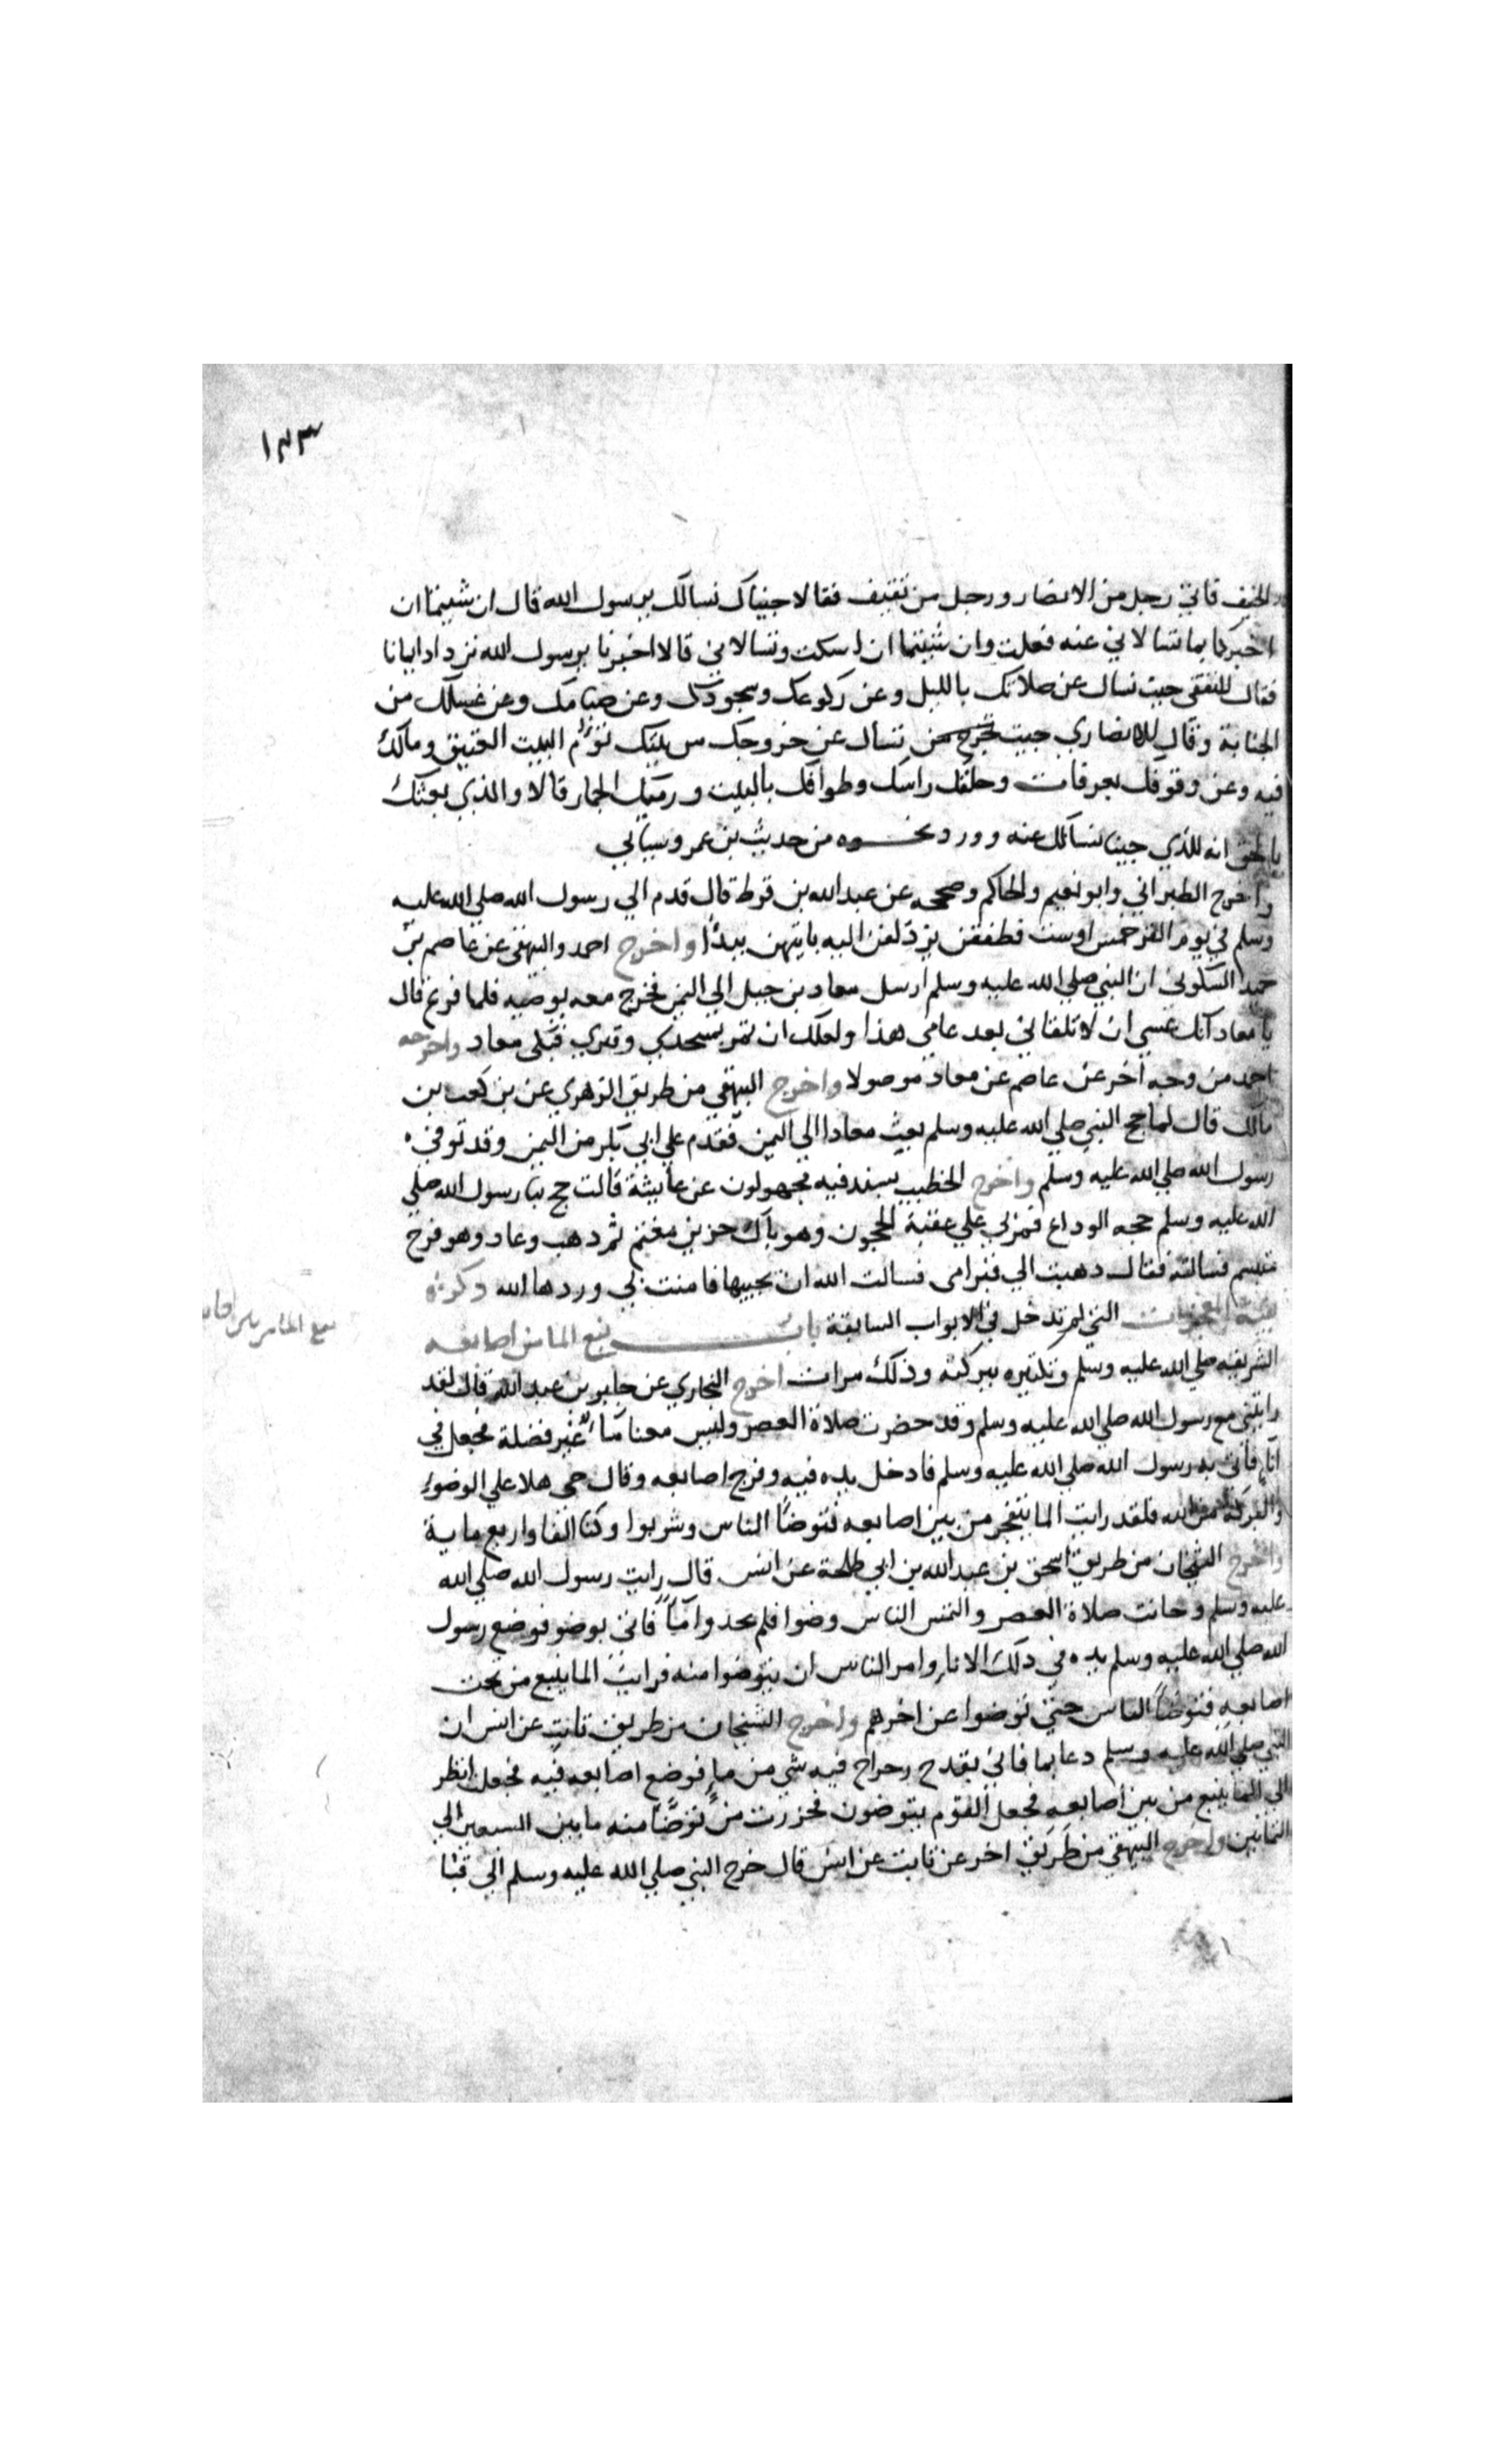 ١٢٣
الخيف فاتي رجل من الانصار ورجل من ثقيف فقالا جيناك نسالك يرسول الله قال ان شيتما ان
اخبركما بما تسالاني عنه فعلت وان شيتما ان اسكت وتسالاني قالا اخبرنا يرسول الله نزداد ايمانا
فقال للثقفي جيت تسال عن صلاتك بالليل وعن ركوعك وسجودك وعن صيامك وعن غسلك من
الجنابة وقال للانصاري جيت تسأل عن خروجك من بيتك تؤم البيت العتيق ومالك
فيه وعن وقوفك بعرفات وحلقك راسك وطوافك بالبيت ورميك الجمار قالا والذي بعثك
بالحق انه للذي جينا نسألك عنه وورد نحوه من حديث بن عمر وسياتي
واخرج الطبراني وابو نعيم والحاكم وصححه عن عبد الله بن قرط قال قدم الي رسول الله صلي الله عليه
وسلم في يوم النحر خمس او ست فطفقن يزدلفن اليه بايتهن يبدأ واخرج احمد والبيهقي عن عاصم بن
حميد السكوني ان النبي صلي الله عليه وسلم ارسل معاد بن جبل الي اليمن فخرج معه يوصيه فلما فرغ قال
يا معاد انك عسي ان لا تلقاني بعد عامي هذا ولعلك ان تمر بمسجدي وقبري فبكى معاد واخرجه
احمد من وجه اخر عن عاصم عن معاد موصولا واخرج البيهقي من طريق الزهري عن بن كعب بن
مالك قال لما حج النبي صلي الله عليه وسلم بعث معادا الي اليمن فقدم علي ابي بكر من اليمن وقد توفي
رسول الله صلي الله عليه وسلم واخرج الخطيب بسند فيه مجهولون عن عايشة قالت حج بنا رسول الله صلي
الله عليه وسلم حجه الوداع فمر بي علي عقبة الحجون وهو باك حزين مغتم ثم دهب وعاد وهو فرح
متبسم فسالته فقال دهبت الي قبر امي فسالت الله ان يحييها فامنت بي وردها الله ذكر
بقية المعجزات التي لم تدخل في الابواب السابقة باب نبع الما من اصابعه
نبع الما من بين اصابعه
الشريفه صلي الله عليه وسلم وتكثيره ببركته وذلك مرات اخرج البخاري عن جابر بن عبد الله قال لقد
رايتني مع رسول الله صلي الله عليه وسلم وقد حضرت صلاة العصر وليس معنا ماء غير فضلة فجعل في
اناء فاتي به رسول الله صلي الله عليه وسلم فادخل يده فيه وفرج اصابعه وقال حي هلا علي الوضوء
والبركة من الله فلقد رايت الما يتفجر من بين اصابعه فتوضأ الناس وشربوا وكنا الفا واربع ماية
واخرج الشيخان من طريق اسحق بن عبد الله بن ابي طلحة عن انس قال رايت رسول الله صلي الله
عليه وسلم وحانت صلاة العصر والتمس الناس وضوا فلم يجدوا ماء فاتي بوضو فوضع رسول
الله صلي الله عليه وسلم يده في ذلك الاناء وامر الناس ان يتوضوا منه فرايت الما ينبع من تحت
اصابعه فتوضأ الناس حتي توضوا عن اخرهم واخرج الشيخان من طريق ثابت عن انس ان
النبي صلي الله عليه وسلم دعا بما فاتي بقدح رحراح فيه شي من ماء فوضع اصابعه فيه فجعل انظر
الي الما ينبع من بين اصابعه فجعل القوم يتوضون فحزرت من توضأ منه ما بين السبعين الي
الثمانين واخرج البيهقي من طريق اخر عن ثابت عن انس قال خرج النبي صلي الله عليه وسلم الي قبا